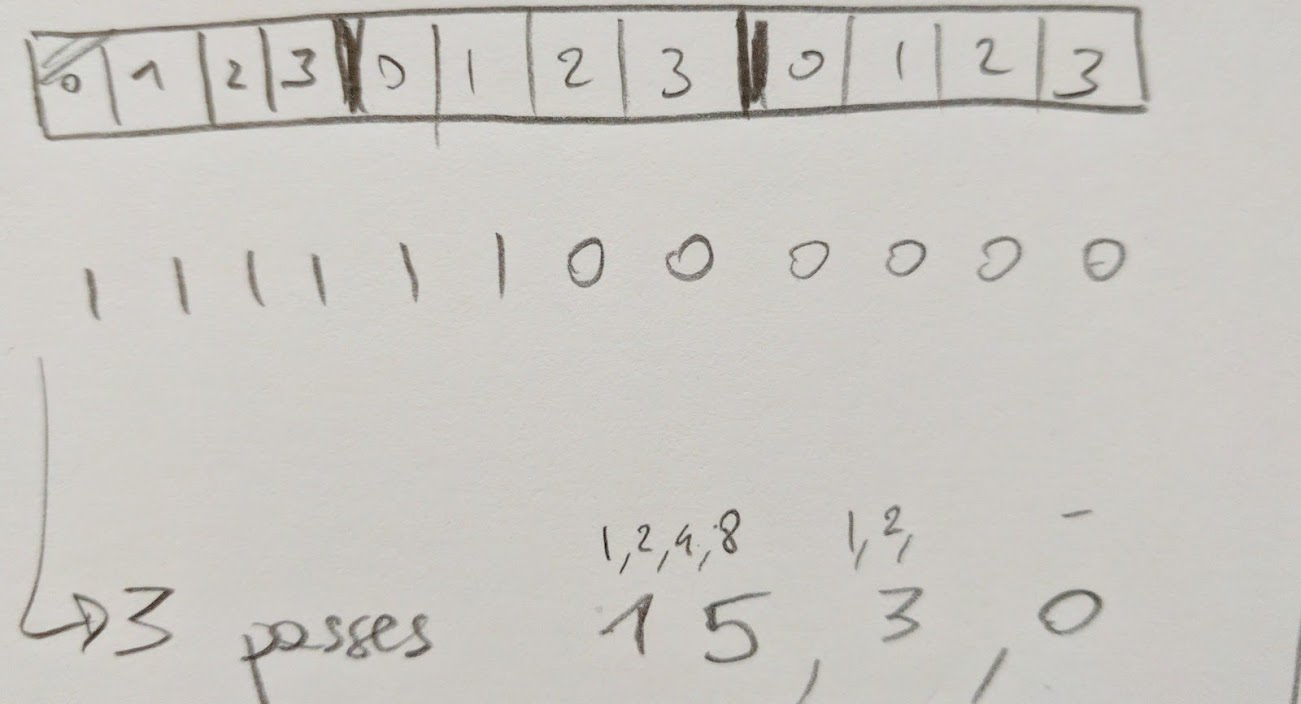 0 1 2 3 0 1 2 3 0 1 2 3
1 1 1 1 1 1 0 0 0 0 0 0
1,2,4,8 1,2, -
3 passes 15, 3, 0